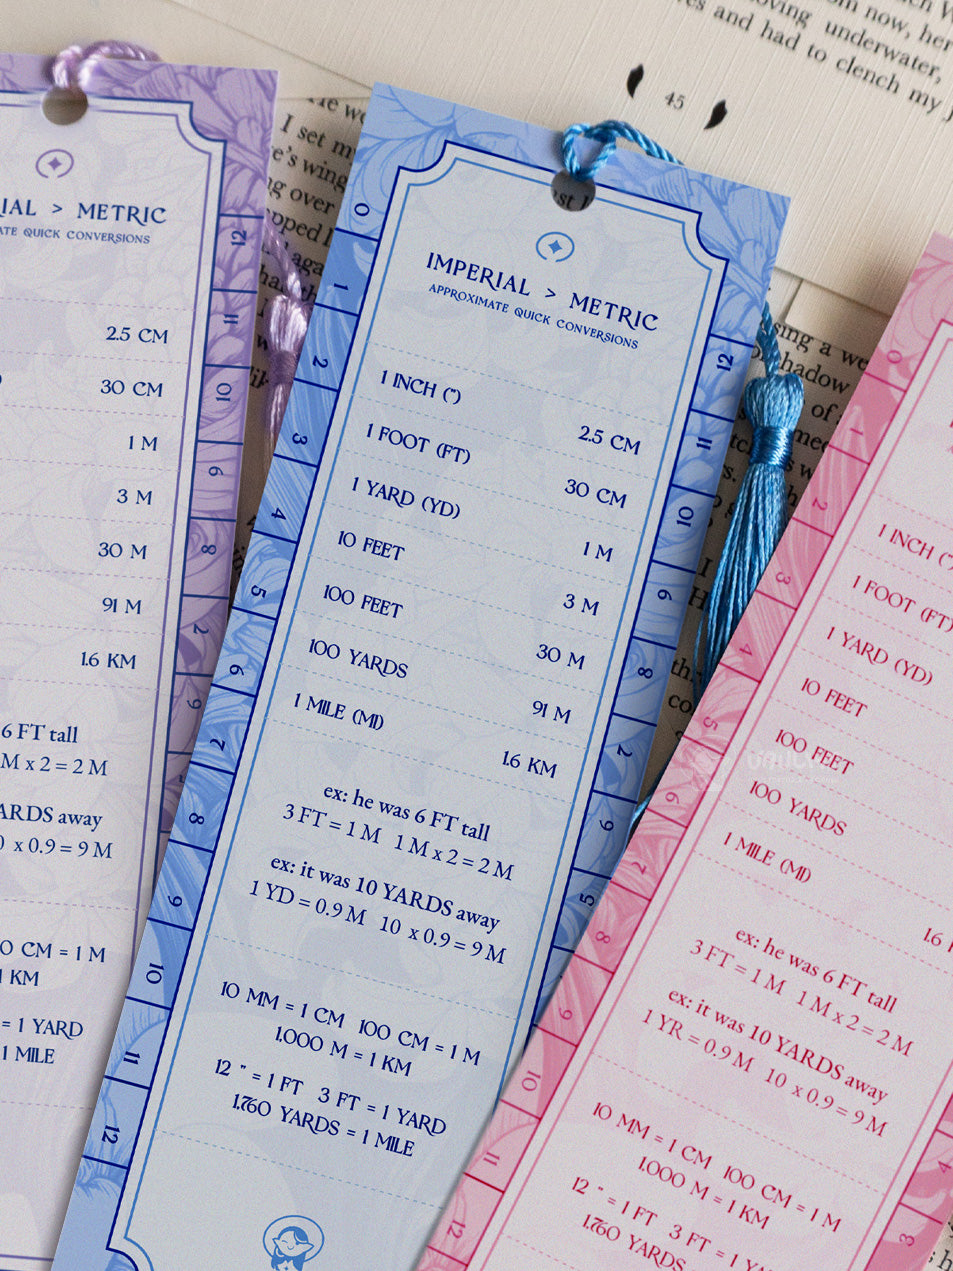 moving
om now, her
ves and had to clench my j
underwater,
45
I set m
e's wing
ng over
apped I
sing a we
shadow
IAL > METRIC
ATE QUICK CONVERSIONS
2.5 CM
30 CM
1 M
3 M
30 M
91 M
1.6 KM
6 FT tall
M x 2 = 2 M
ARDS away
0 x 0.9 = 9 M
0 CM = 1 M
1 KM
= 1 YARD
1 MILE
12
11
10
9
8
7
6
IMPERIAL > METRIC
APPROXIMATE QUICK CONVERSIONS
1 INCH (") 2.5 CM
1 FOOT (FT) 30 CM
1 YARD (YD) 1 M
10 FEET 3 M
100 FEET 30 M
100 YARDS 91 M
1 MILE (MI) 1.6 KM
ex: he was 6 FT tall
3 FT = 1 M 1 M x 2 = 2 M
ex: it was 10 YARDS away
1 YD = 0.9 M 10 x 0.9 = 9 M
10 MM = 1 CM 100 CM = 1 M
1.000 M = 1 KM
12 " = 1 FT 3 FT = 1 YARD
1.760 YARDS = 1 MILE
0
1
2
3
4
5
6
7
8
9
10
11
12
12
11
10
9
8
7
6
5
1 INCH (")
1 FOOT (FT)
1 YARD (YD)
10 FEET
100 FEET
100 YARDS
1 MILE (MI)
1.6
ex: he was 6 FT tall
3 FT = 1 M 1 M x 2 = 2 M
ex: it was 10 YARDS away
1 YR = 0.9 M 10 x 0.9 = 9 M
10 MM = 1 CM 100 CM = 1 M
1.000 M = 1 KM
12 " = 1 FT 3 FT = 1 YA
1.760 YARDS
0
1
2
3
4
5
6
7
8
9
10
11
12
4
3